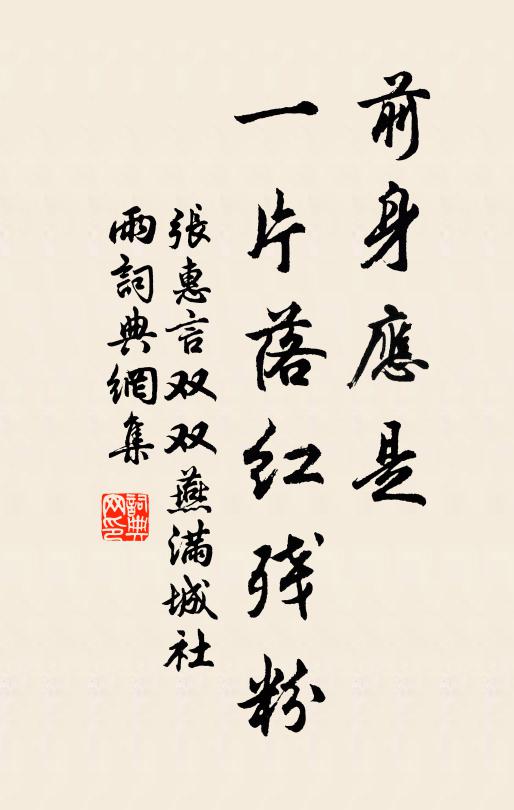 前身應是
一片落红残粉
張惠言双双燕满城社
雨詞典網集
詞典
网印